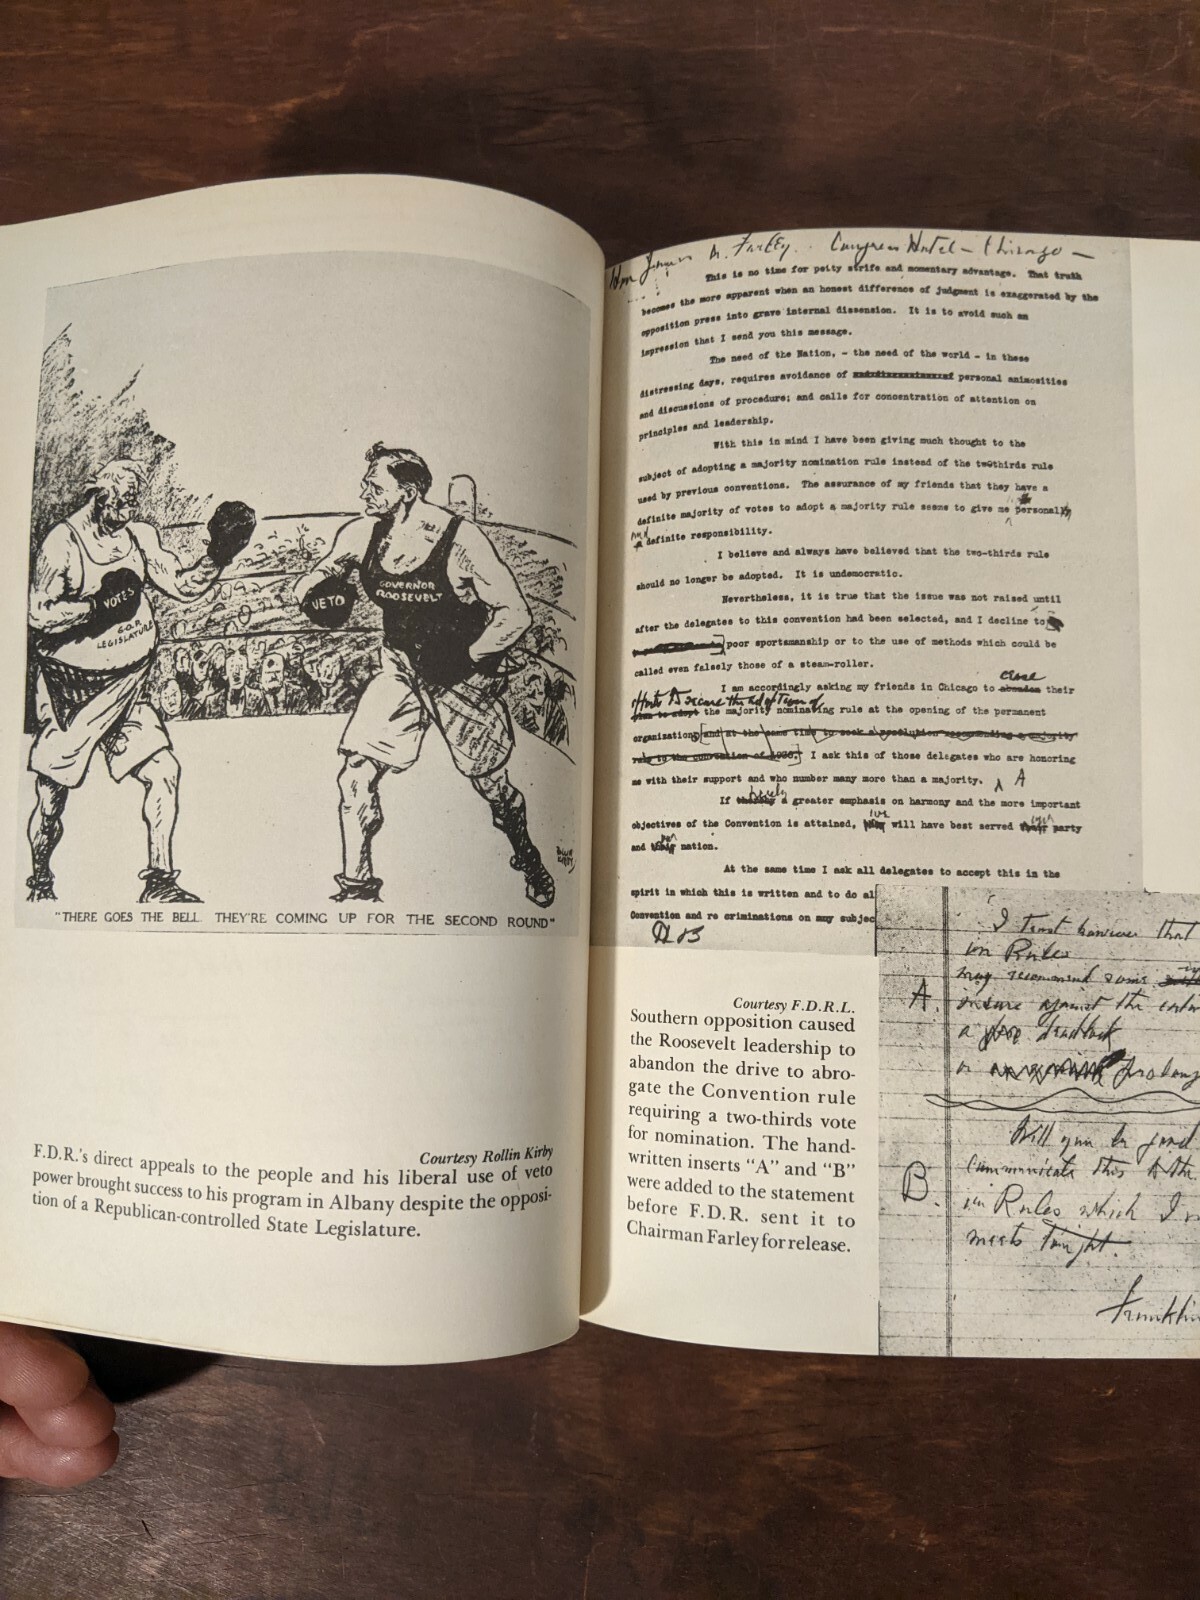 VOTES
G.O.P.
LEGISLATURE
VETO
GOVERNOR
ROOSEVELT
ROLLIN
KIRBY
"THERE GOES THE BELL. THEY'RE COMING UP FOR THE SECOND ROUND"
Courtesy Rollin Kirby
F.D.R.'s direct appeals to the people and his liberal use of veto
power brought success to his program in Albany despite the opposi-
tion of a Republican-controlled State Legislature.
Hon James A. Farley. Congress Hotel - Chicago -
This is no time for petty strife and momentary advantage. That truth
becomes the more apparent when an honest difference of judgment is exaggerated by the
opposition press into grave internal dissension. It is to avoid such an
impression that I send you this message.
The need of the Nation, - the need of the world - in these
distressing days, requires avoidance of personal animosities
and discussions of procedure; and calls for concentration of attention on
principles and leadership.
With this in mind I have been giving much thought to the
subject of adopting a majority nomination rule instead of the two thirds rule
used by previous conventions. The assurance of my friends that they have a
definite majority of votes to adopt a majority rule seems to give me a personal
and definite responsibility.
I believe and always have believed that the two-thirds rule
should no longer be adopted. It is undemocratic.
Nevertheless, it is true that the issue was not raised until
after the delegates to this convention had been selected, and I decline to
poor sportsmanship or to the use of methods which could be
called even falsely those of a steam-roller.
cease
I am accordingly asking my friends in Chicago to abandon their
efforts to secure the adoption of
the majority nominating rule at the opening of the permanent
organization; and at the same time to seek a resolution recommending a majority
rule to the convention of 1936. I ask this of those delegates who are honoring
me with their support and who number many more than a majority. A
hereby
If thereby a greater emphasis on harmony and the more important
objectives of the Convention is attained, we will have best served our party
and our nation.
At the same time I ask all delegates to accept this in the
spirit in which this is written and to do al
Convention and re criminations on any subjec
B
Courtesy F.D.R.L.
Southern opposition caused
the Roosevelt leadership to
abandon the drive to abro-
gate the Convention rule
requiring a two-thirds vote
for nomination. The hand-
written inserts "A" and "B"
were added to the statement
before F.D.R. sent it to
Chairman Farley for release.
I trust however that
on Rules
may recommend some
A. insure against the
a deadlock
or prolong
Will you be good
B. communicate this to the
on Rules which I
meets tonight.
Franklin